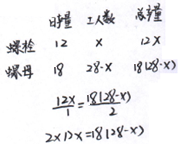 日产量 工人数 总产量
螺栓 12 x 12x
螺母 18 28-x 18(28-x)
12x/1 = 18(28-x)/2
2×12x=18(28-x)